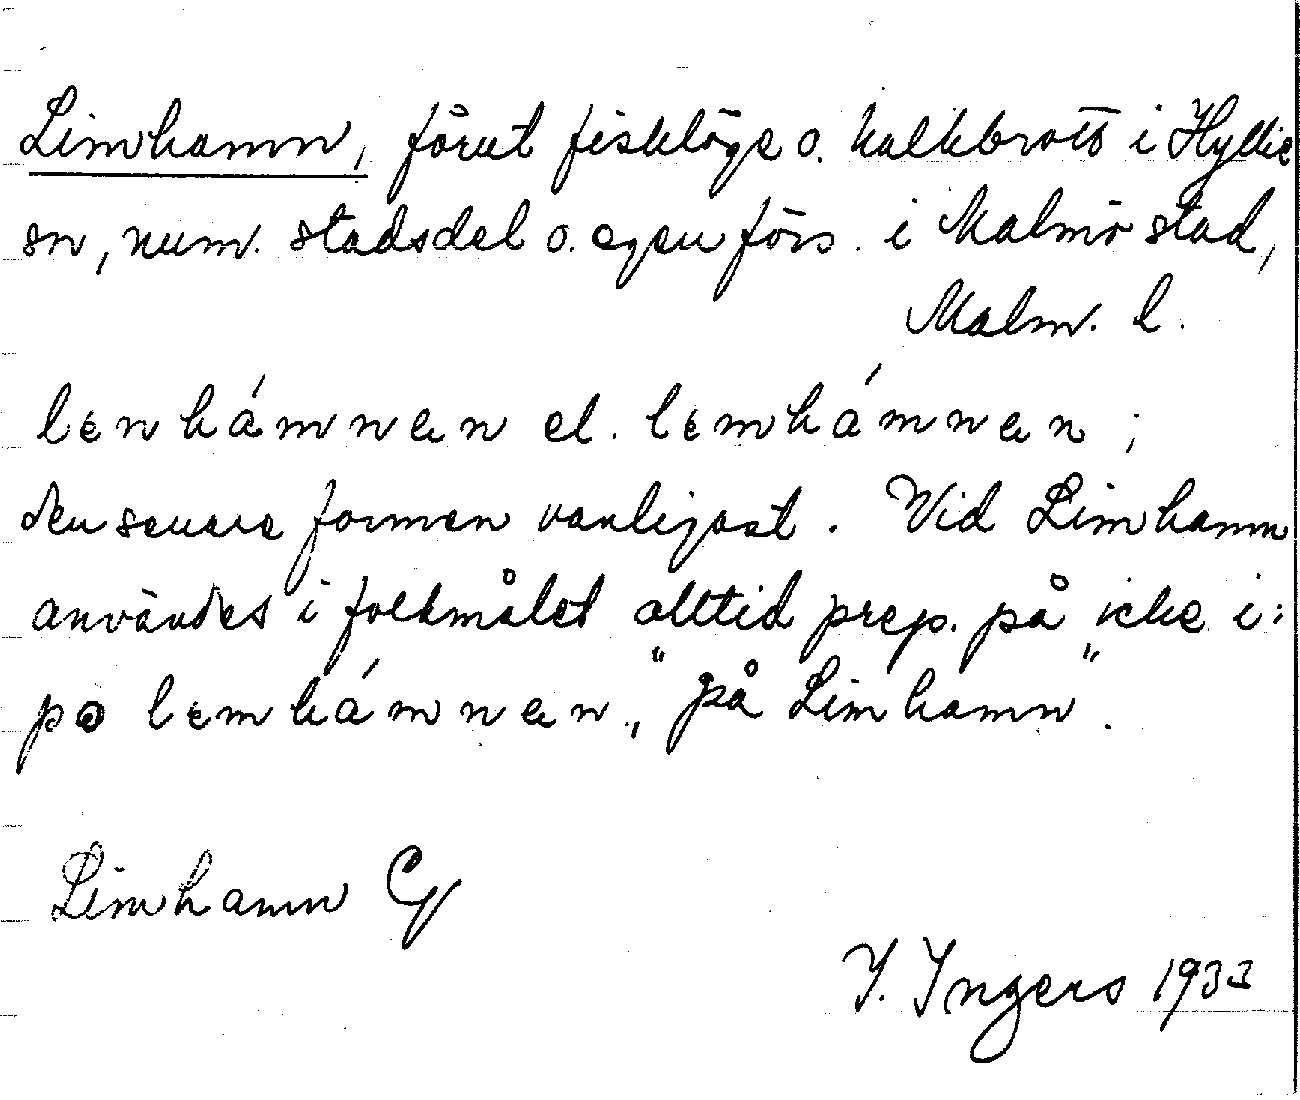 Limhamn, förut fiskläge o. kalkbrott i Hyllie
sn, num. stadsdel o. egen förs. i Malmö stad,
Malm. l.
lenhámnen el. lemhámnen;
den senare formen vanligast. Vid Limhamn
användes i folkmålet alltid prep. på icke i:
po lemhámnen, "på Limhamn".
Limhamn
I. Ingers 1933